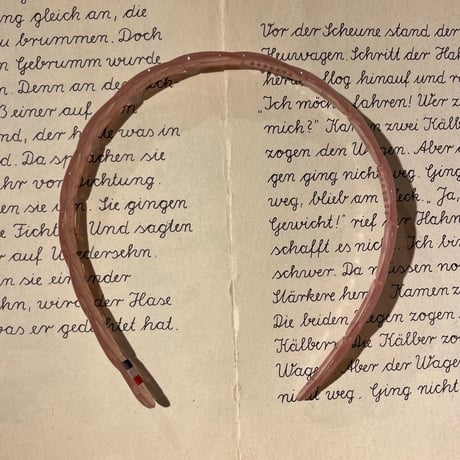 ng gleich an, die
u brummen. Doch
n Gebrumm wurde
n. Denn an
ß einer auf
nd, der was in
d. Da sprachen sie
hr vor Dichtung.
en sie Sie gingen
e Fichte Und sagten
r auf Wiedersehn.
n sie einander
hn, wird der Hase
was er gedichtet hat.
Vor der Scheune stand der
Heuwagen. Schritt der Hah
flog hinauf und r
„Ich möcht fahren! Wer z
mich?" Kamen zwei Kälber
zogen den Wagen. Aber d
gen ging nicht weg. Ging
weg, blieb am Fleck. „Ja,
Gewicht!" rief der Hahn
schafft es nicht. Ich bin
schwer. Da müssen noc
Stärkere her. Kamen z
Die beiden Ziegen zogen
Kälbern. Die Kälber zo
Wagen. Aber der Wage
nicht weg. Ging nicht